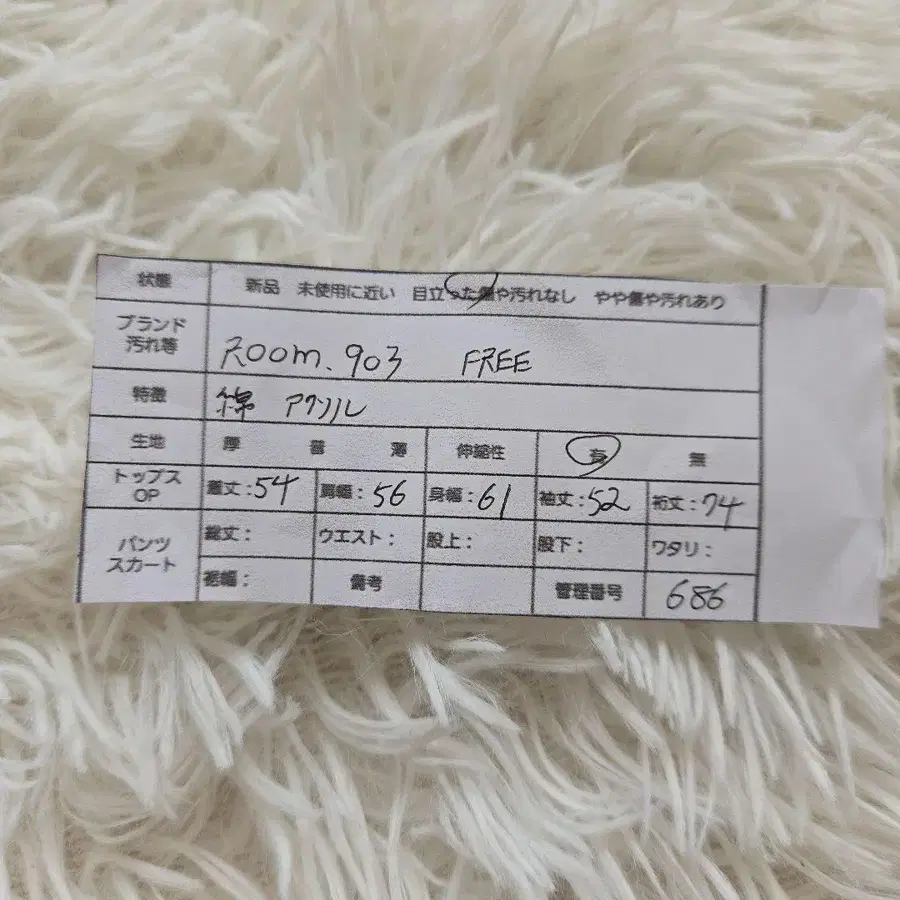 状態 新品 未使用に近い 目立った傷や汚れなし やや傷や汚れあり
ブランド 汚れ等 Room.903 FREE
特徴 綿 アクリル
生地 厚 普 薄 伸縮性 有 無
トップス OP 着丈:54 肩幅:56 身幅:61 袖丈:52 裄丈:74
パンツ スカート 総丈: ウエスト: 股上: 股下: ワタリ:
裾幅: 備考 管理番号 686